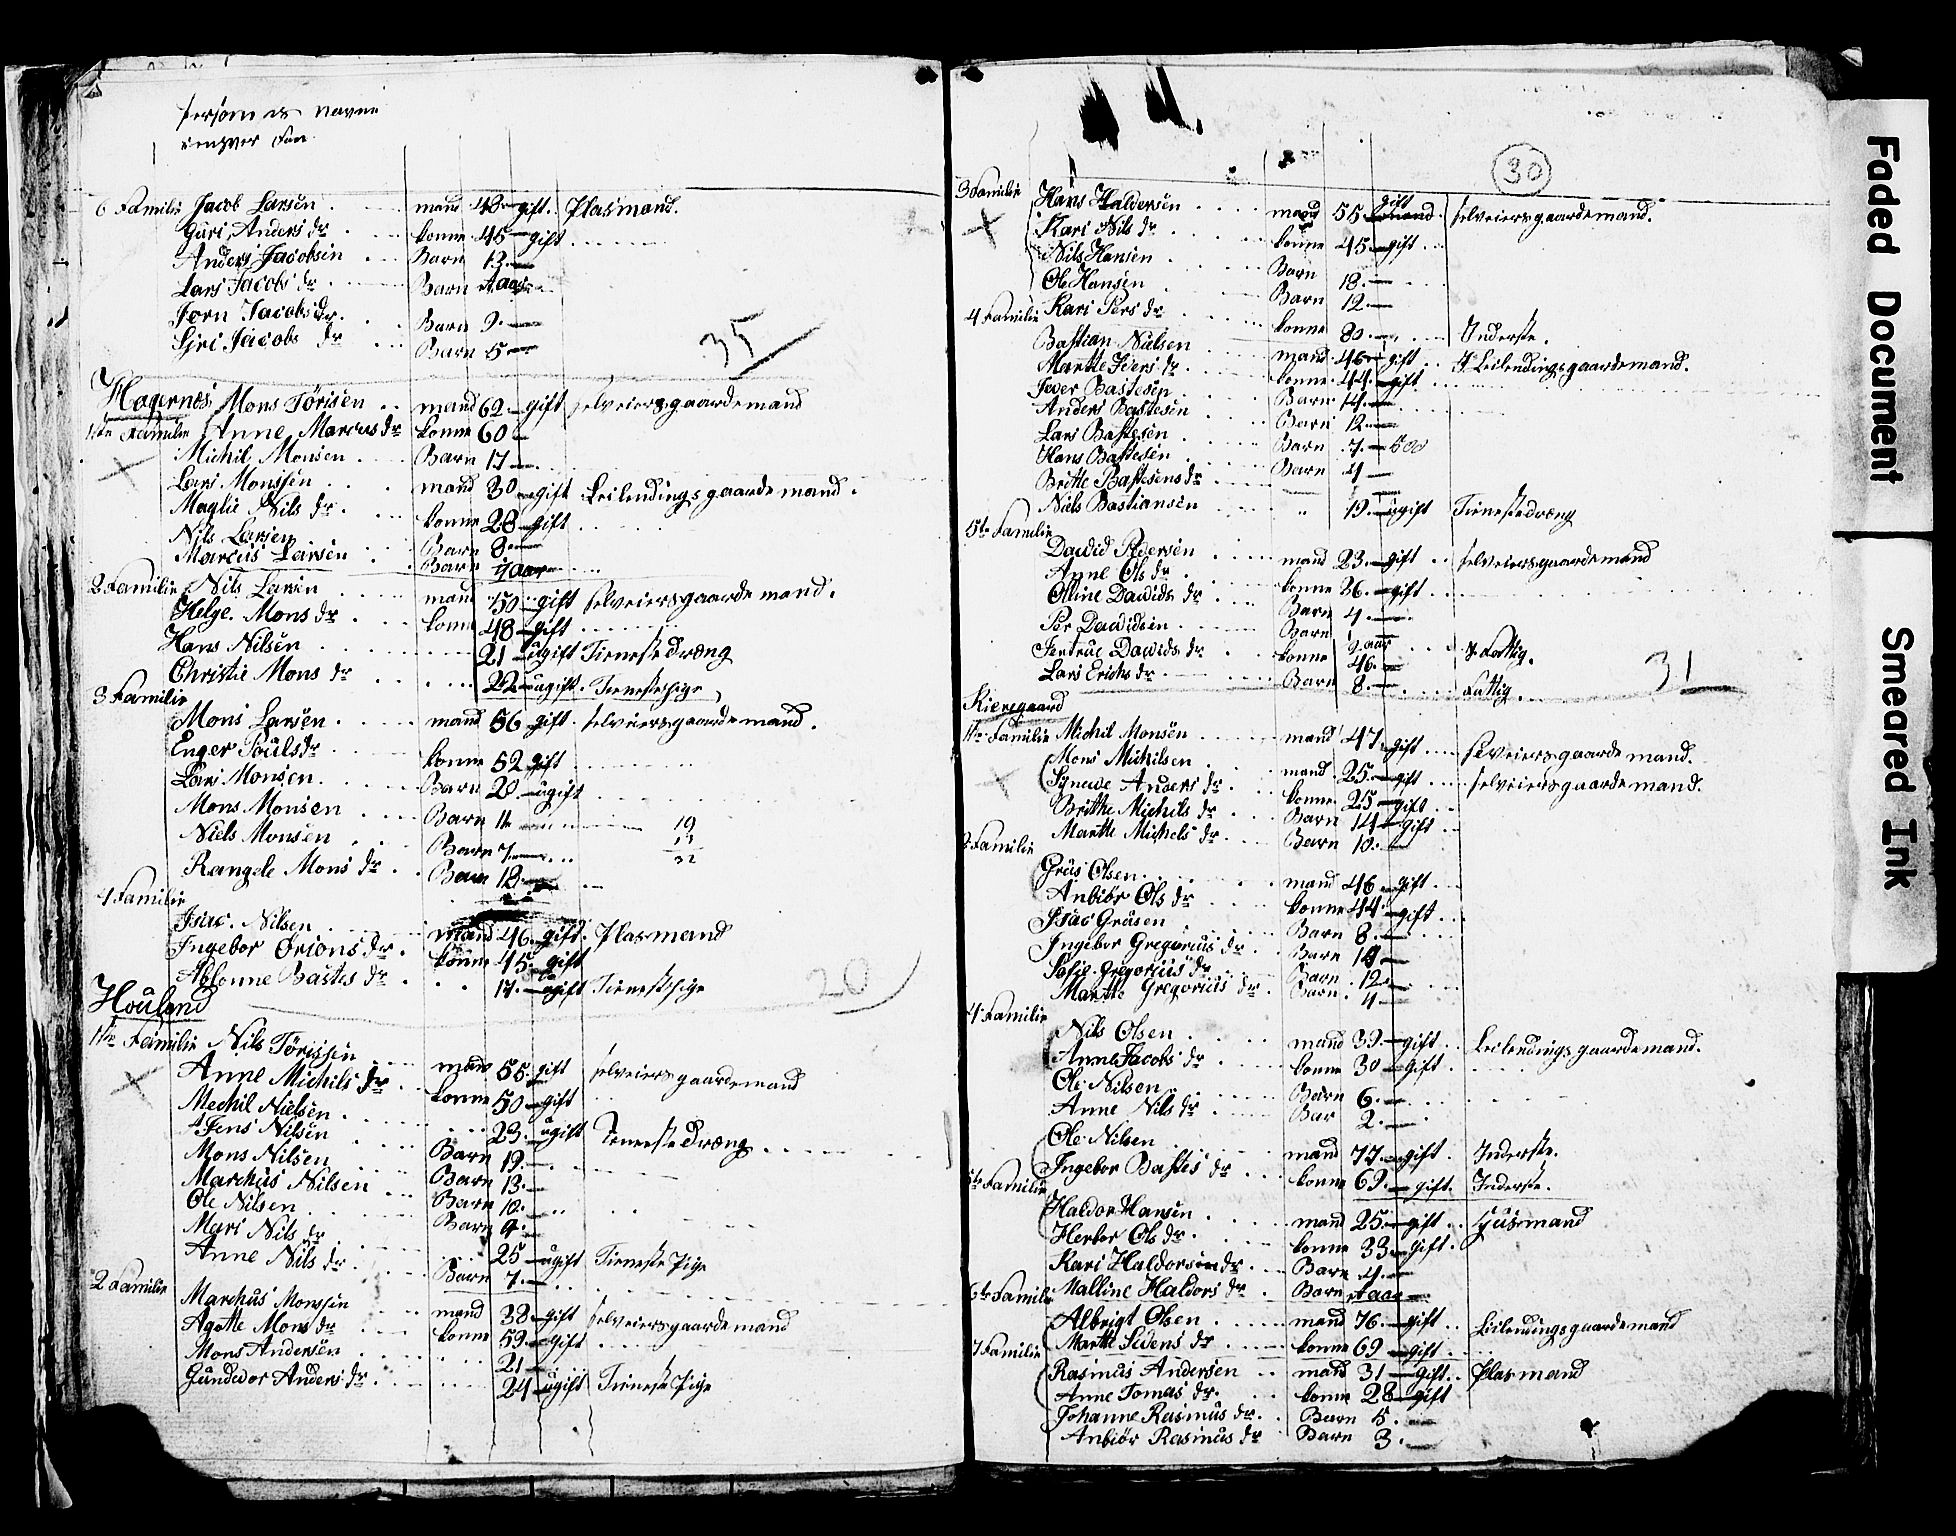 Persom es navne
enhver Fan
6 Familie Jacob Larsen mand 48 gift. Plasmand.
Guri Anders dr konne 45 gift
Anders Jacobsen Barn 13.
Lars Jacobs dr Barn 1 aar
Jorn Jacobs dr. Barn 9
Siri Jacobs dr Barn 5
35
Hagernes Mons Törisen mand 62. gift selveiersgaardemand
1ste Familie Anne Marcus dr konne 60
Michil Monsen Barn 17
Lars Monssen mand 30 gift Leilendingsgaardemand.
Maglie Nils dr. konne 28 gift
Nils Larsen Barn 8
Marcus Larsen Barn aar
2 Familie Nils Larsen mand 50 gift selveiersgaardemand.
Helge. Mons dr konne 48 gift
Hans Nilsen 21 ugift Tienestedræng
Christie Mons dr 22 ugift. Tienestepige
3 Familie
Mons Larsen mand 56 gift selveiersgaardemand.
Enger Pouls dr konne 52 gift
Lars Monsen. Barn 20 ugift
Mons Monsen Barn 11
Niels Monsen Barn 7
19
13
32
Rangele Mons dr Barn 18
4 Familie
Isac. Nilsen mand 46. gift. Plasmand
Ingebor Orions dr. konne 45. gift
Ablonne Bastes dr 17. ugift Tienestepige
20
Houlend
1ste Familie Nils Törissen mand 55. gift selveiersgaardemand
Anne Michils dr konne 50 gift
Mechil Nielsen 23. ugift Tienestedræng
Jens Nilsen Barn 19.
Mons Nilsen Barn 13.
Marchus Nilsen Barn 10.
Ole Nilsen Barn 9.
Mari Nils dr 25 ugift Tieneste Pige
Anne Nils dr. Barn 7.
2 Familie
Marchus Monssen mand 38. gift selveiersgaardemand
Agotte Mons dr konne 59 gift
Mons Andersen 21
Gundedor Anders dr. 24 ugift Tieneste Pige
30
3 Familie Hans Haldersen mand 55 gift selveiersgaardemand.
Kari Nils dr konne 45 gift
Nils Hansen Barn 18.
Ole Hansen Barn 12.
4 Familie Kari Pers dr konne 80 Inderste.
Bastian Nielsen mand 46 gift Leilendingsgaardemand.
Marthe Ivers dr. konne 44 gift
Iver Bastesen Barn 14.
Anders Bastesen Barn 12
Lars Bastesen Barn 7
Hans Bastesen Barn 4
Britte Bastesens dr
Niels Bastiansen 19. ugift Tienestedræng
5te Familie
David Pedersen mand 23. gift selveiersgaardemand
Anne Ols dr. konne 36. gift
Olline Davids dr Barn 4
Per Davidsen Barn aar
Jertrue Davids dr konne 46. Fattig.
Lars Erichs dr Barn 8. Fattig.
31
Kiersgaard
1te Familie Michil Monsen mand 47 gift selveiersgaardemand.
Mons Michilsen mand 25. gift selveiersgaardemand.
Synneve Anders dr. konne 25 gift
Britthe Michils dr Barn 14 gift
Marthe Michels dr. Barn 10.
Familie
Grüs Olsen. mand 46 gift
Anbiör Ols dr konne 44 gift
Isac Grüsen Barn 8.
Ingebor Gregorius dr. Barn 10
Sofie Gregorius dr Barn. 12
Marthe Gregorius dr. Barn. 4
4 Familie
Nils Olsen mand 39. gift Leilendingsgaardemand.
Anne Jacobs dr konne 30 gift
Ole Nilsen. Barn 6.
Anne Nils dr Bar 2.
Ole Nilsen mand 77 gift. Inderste.
Ingebor Bastes dr konne 69. gift. Inderste.
5te Familie
Haldor Hansen mand 25. gift Husmand
Herbor Ols dr. konne 33 gift.
Kari Haldorsen dr. Barn 4.
6te Famili Malline Haldors dr. Barn 1 aar
Albrigt Olsen mand 76. gift Leilendingsgaardemand
7 Familie Marthe Sedens dr konne 69 gift
Rasmus Andersen mand 31 gift. Plasmand
Anne Tomas dr. konne 28 gift
Johanne Rasmus dr. Barn 5.
Anbiör Rasmus dr Barn 3.
Faded Document
Smeared Ink